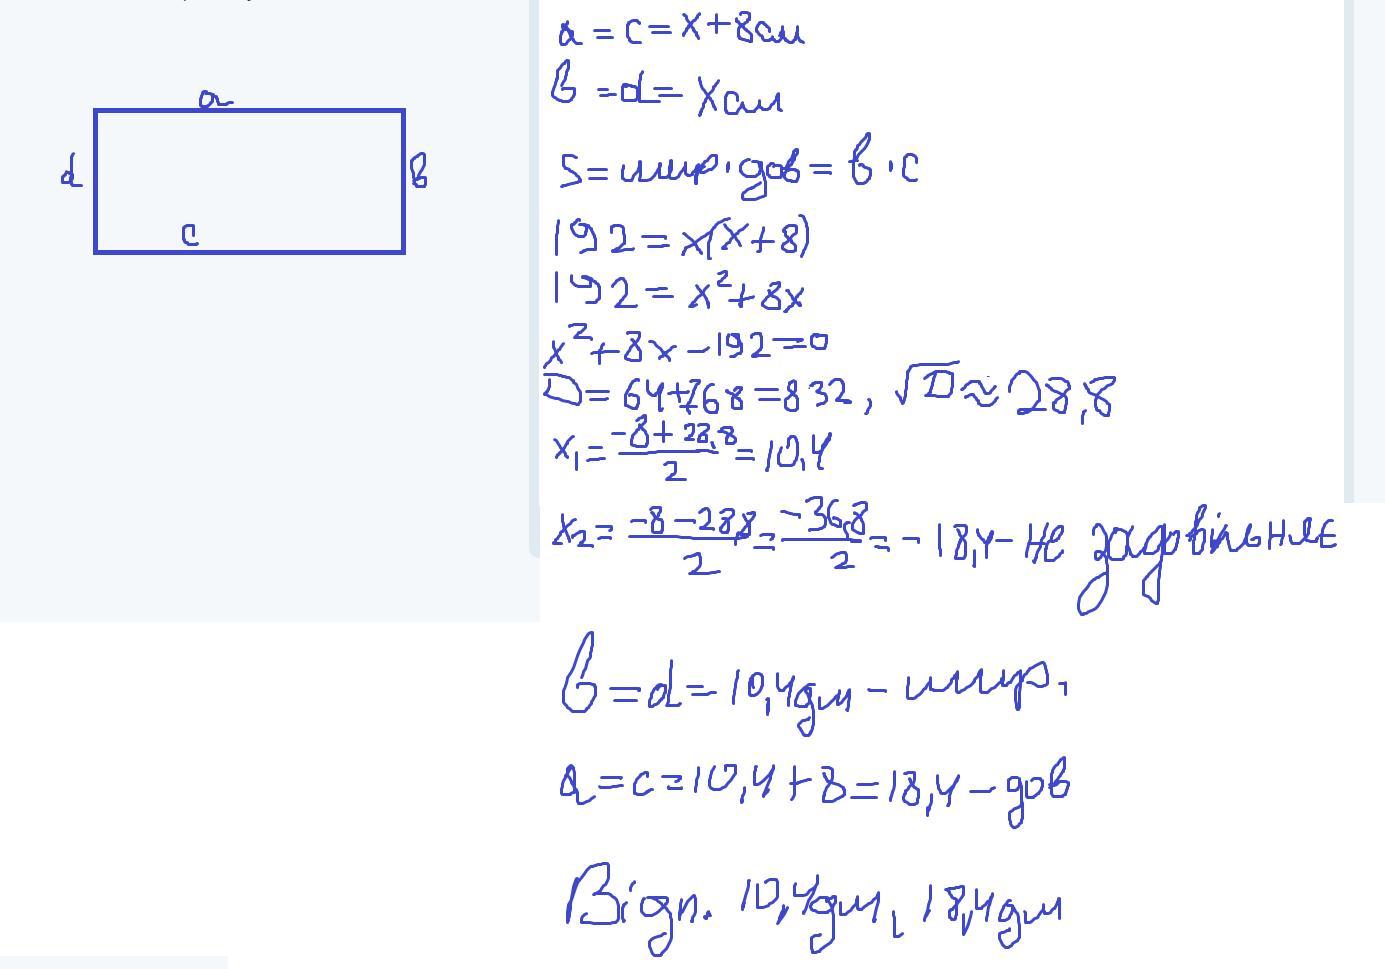 a
d
в
c
a = c = x+8см
в = d = xсм
S = шир·дов = в·c
192 = x(x+8)
192 = x²+8x
x²+8x-192=0
D = 64+768=832, √D≈28,8
x₁ = (-8+28,8)/2 = 10,4
x₂ = (-8-28,8)/2 = (-36,8)/2 = -18,4 - не задовільняє
в = d = 10,4дм - шир.
a = c = 10,4+8=18,4 - дов
Відп. 10,4дм, 18,4дм